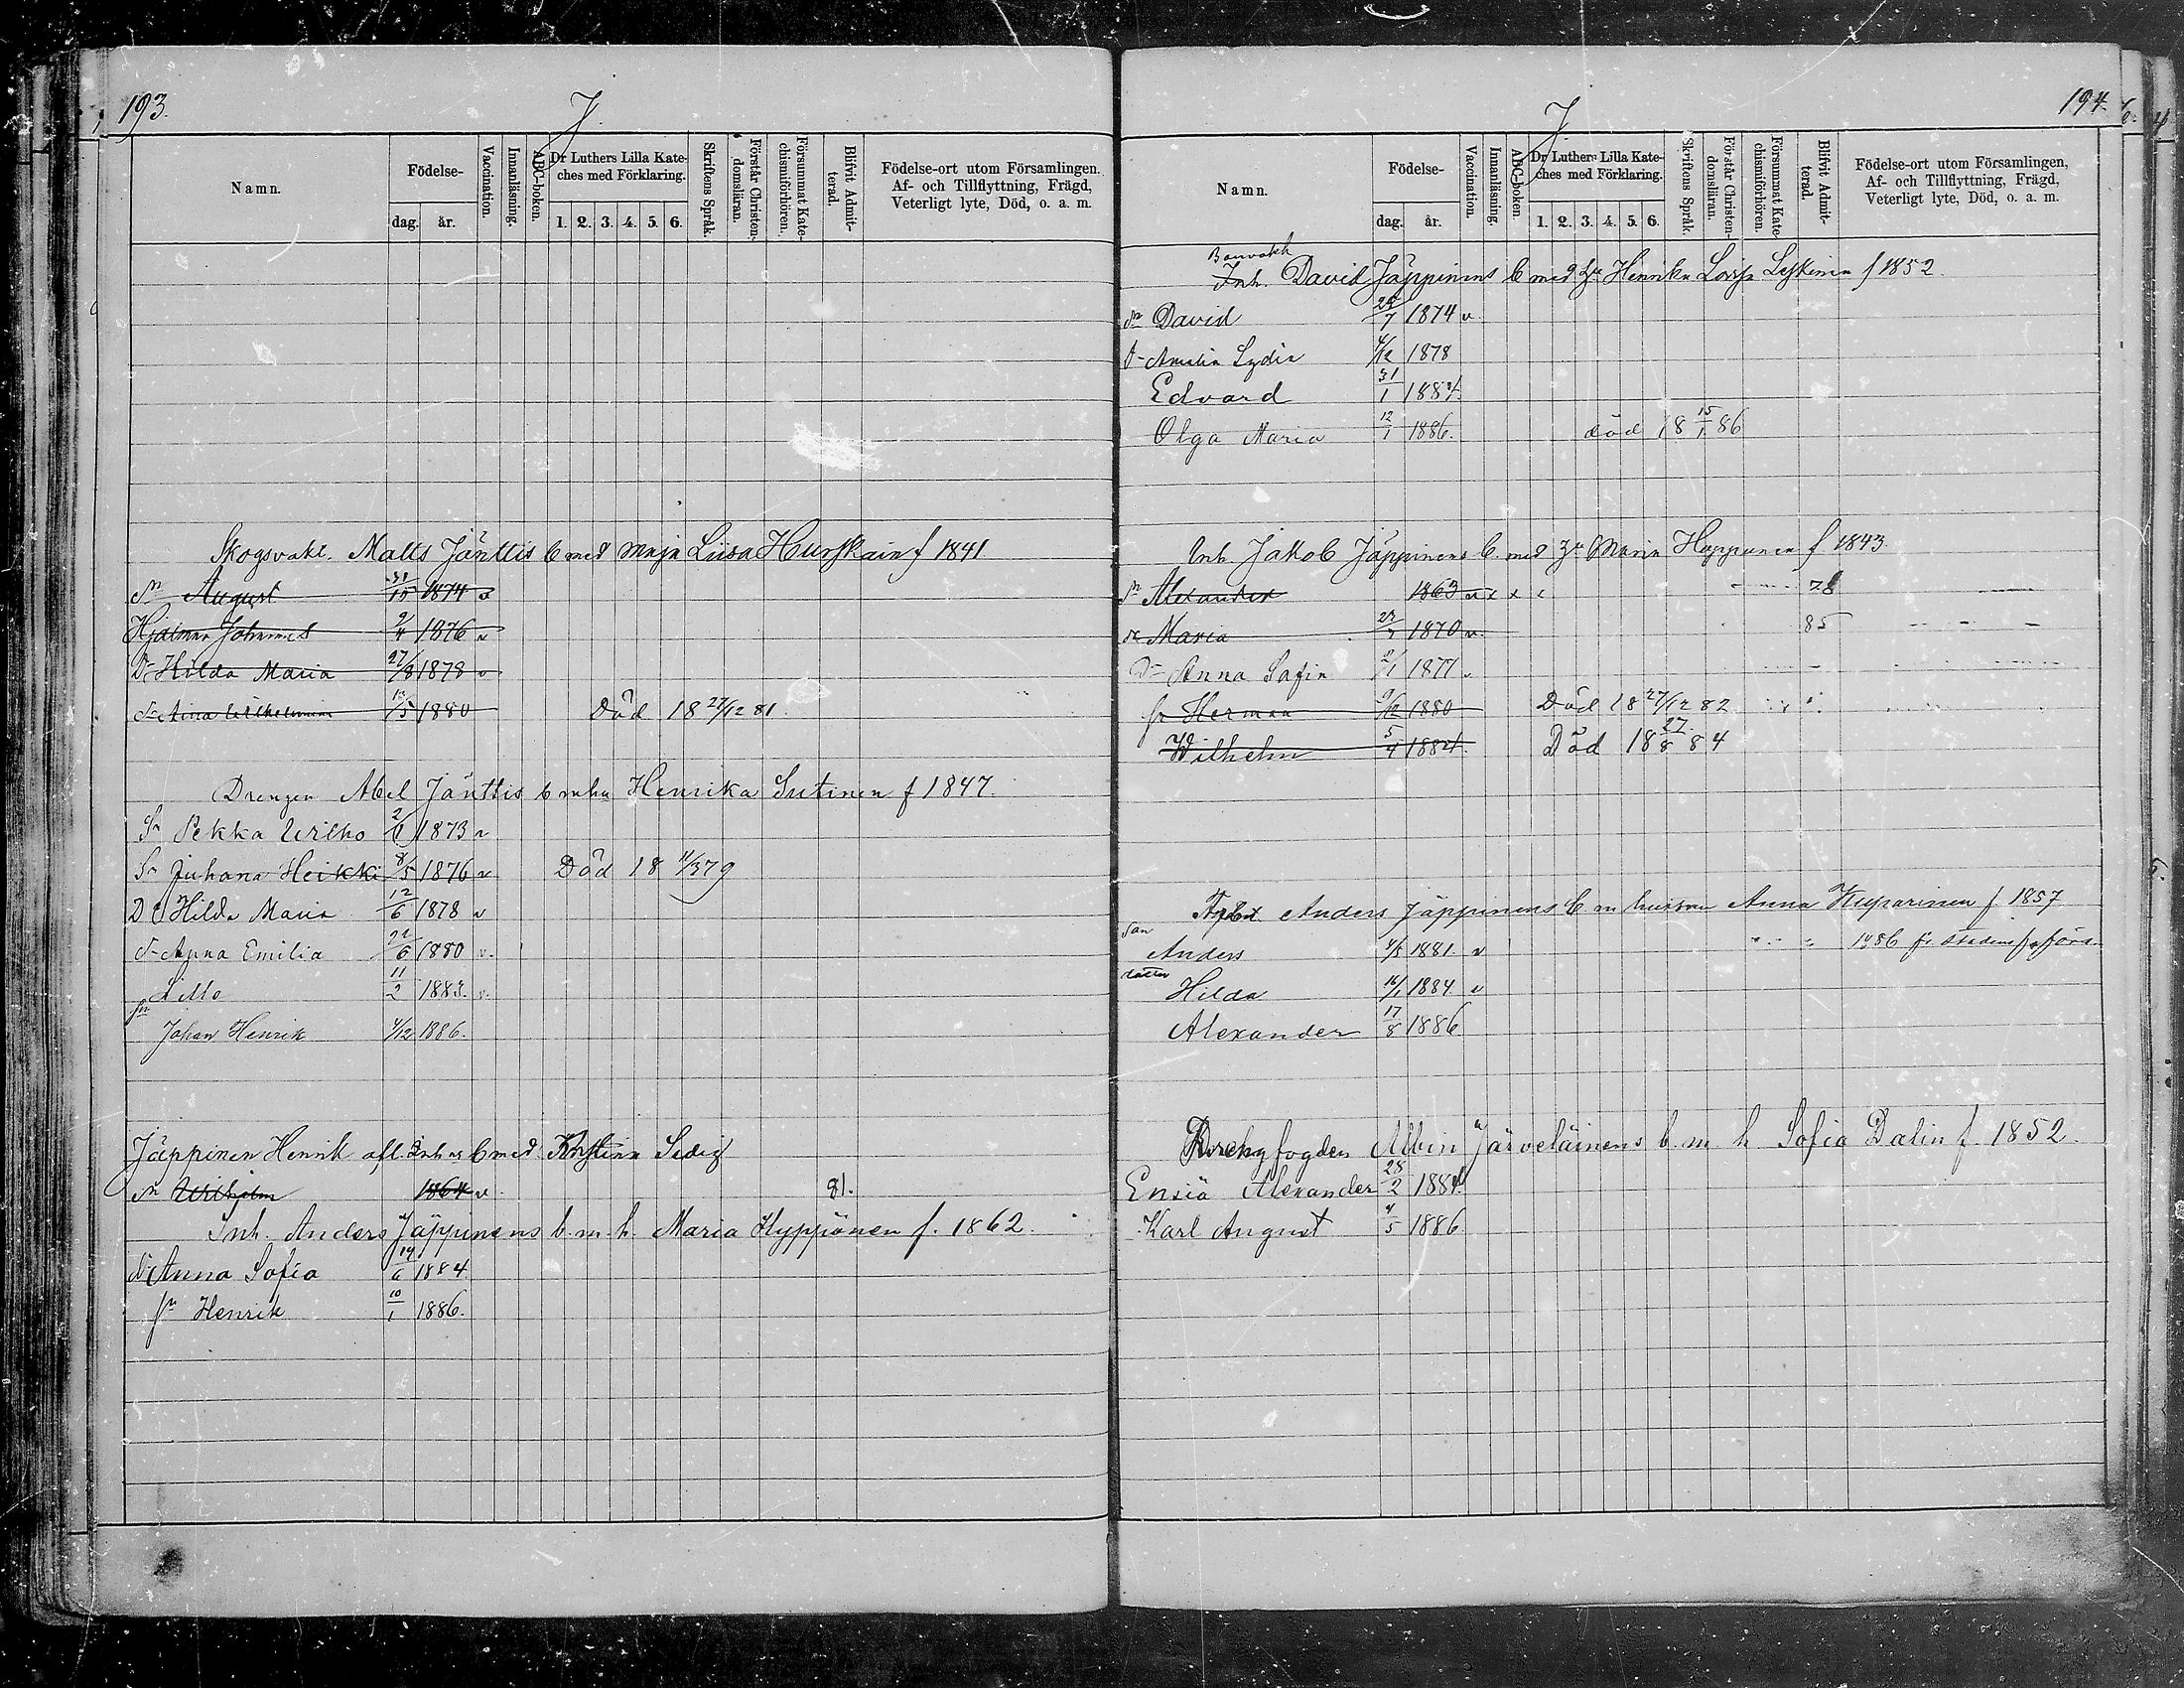 193.
J.
Namn.
Födelse-
dag. år.
Vaccination.
Innanläsning.
ABC-boken.
Dr Luthers Lilla Kate-
ches med Förklaring.
1. 2. 3. 4. 5. 6.
Skriftens Språk.
Förstår Christen-
domsläran.
Försummat Kate-
chismiförhören.
Blifvit Admit-
terad.
Födelse-ort utom Församlingen.
Af- och Tillflyttning, Frägd,
Veterligt lyte, Död, o. a. m.
Skogsvakt. Matts Jänttis b med Maja Liisa Hurskain f 1841
Sn August 31/10 1874 v
Hjalmar Johannes 2/4 1876 v
Dr Hilda Maria 27/8 1878 v
Aina Wilhelmina 12/5 1880 Död 18 27/12 81.
Drengen Abel Jänttis b m hu Henrika Sutinen f 1847.
Sn Pekka Wilho 1873 v
Sn Juhana Heikki 8/5 1876 v Död 18 11/3 79
Dr Hilda Maria 12/6 1878 v
Dr Anna Emilia 22/6 1880 v.
11/2 1883. v.
sn
Johan Henrik 4/12 1886.
Jäppinen Henrik afl. Inh.s b med Kristina
Sn Wilhelm 1864 v. 81.
Inh. Anders Jäppinens b. m. h. Maria Hyppönen f. 1862.
dr Anna Sofia 19/6 1884.
sn Henrik 10/1 1886.
194.
J.
Namn.
Födelse-
dag. år.
Vaccination.
Innanläsning.
ABC-boken.
Dr Luthers Lilla Kate-
ches med Förklaring.
1. 2. 3. 4. 5. 6.
Skriftens Språk.
Förstår Christen-
domsläran.
Försummat Kate-
chismiförhören.
Blifvit Admit-
terad.
Födelse-ort utom Församlingen,
Af- och Tillflyttning, Frägd,
Veterligt lyte, Död, o. a. m.
Banvakt
Inh. David Jäppinens b med hu Henrika Lovisa Leskinen f 1852.
sn David 1874 v
dr Amalia Lydia 4/12 1878
Edvard 31/1 1884.
Olga Maria 12/1 1886. död 18 15/1 86
Inh. Jakob Jäppinens b. med hu Maria Huppunen f 1843.
sn Alexander 1863 v x x 28
dr Maria 1870 v. 85
Dr Anna Sofia 1877 v
sn Herman 9/12 1880 Död 18 27/12 82
Wilhelm 5/4 1884. Död 18 27/8 84
Anders Jäppinens b m hustrun Anna Kuparinen f. 1857
son
Anders 4/5 1881. v 1886 fr.
dotter
Hilda 16/1 1884 v
Alexander 17/8 1886
Albin Järveläinens b. m h Sofia Dalin f. 1852.
Ensiö Alexander 28/2 1884.
Karl August 4/5 1886